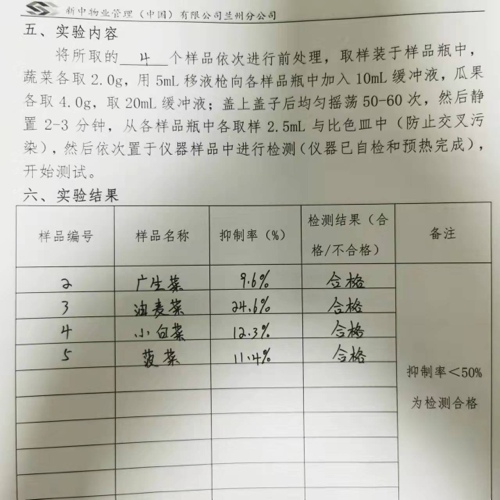 新中物业管理（中国）有限公司兰州分公司
五、实验内容
将所取的 4 个样品依次进行前处理，取样装于样品瓶中，
蔬菜各取 2.0g，用 5mL 移液枪向各样品瓶中加入 10mL 缓冲液，瓜果
各取 4.0g，取 20mL 缓冲液；盖上盖子后均匀摇荡 50-60 次，然后静
置 2-3 分钟，从各样品瓶中各取样 2.5mL 与比色皿中（防止交叉污
染），然后依次置于仪器样品中进行检测（仪器已自检和预热完成），
开始测试。
六、实验结果
样品编号 样品名称 抑制率（%） 检测结果（合格/不合格） 备注
2 广生菜 9.6% 合格
3 油麦菜 24.6% 合格
4 小白菜 12.3% 合格
5 菠菜 11.4% 合格
抑制率＜50%
为检测合格